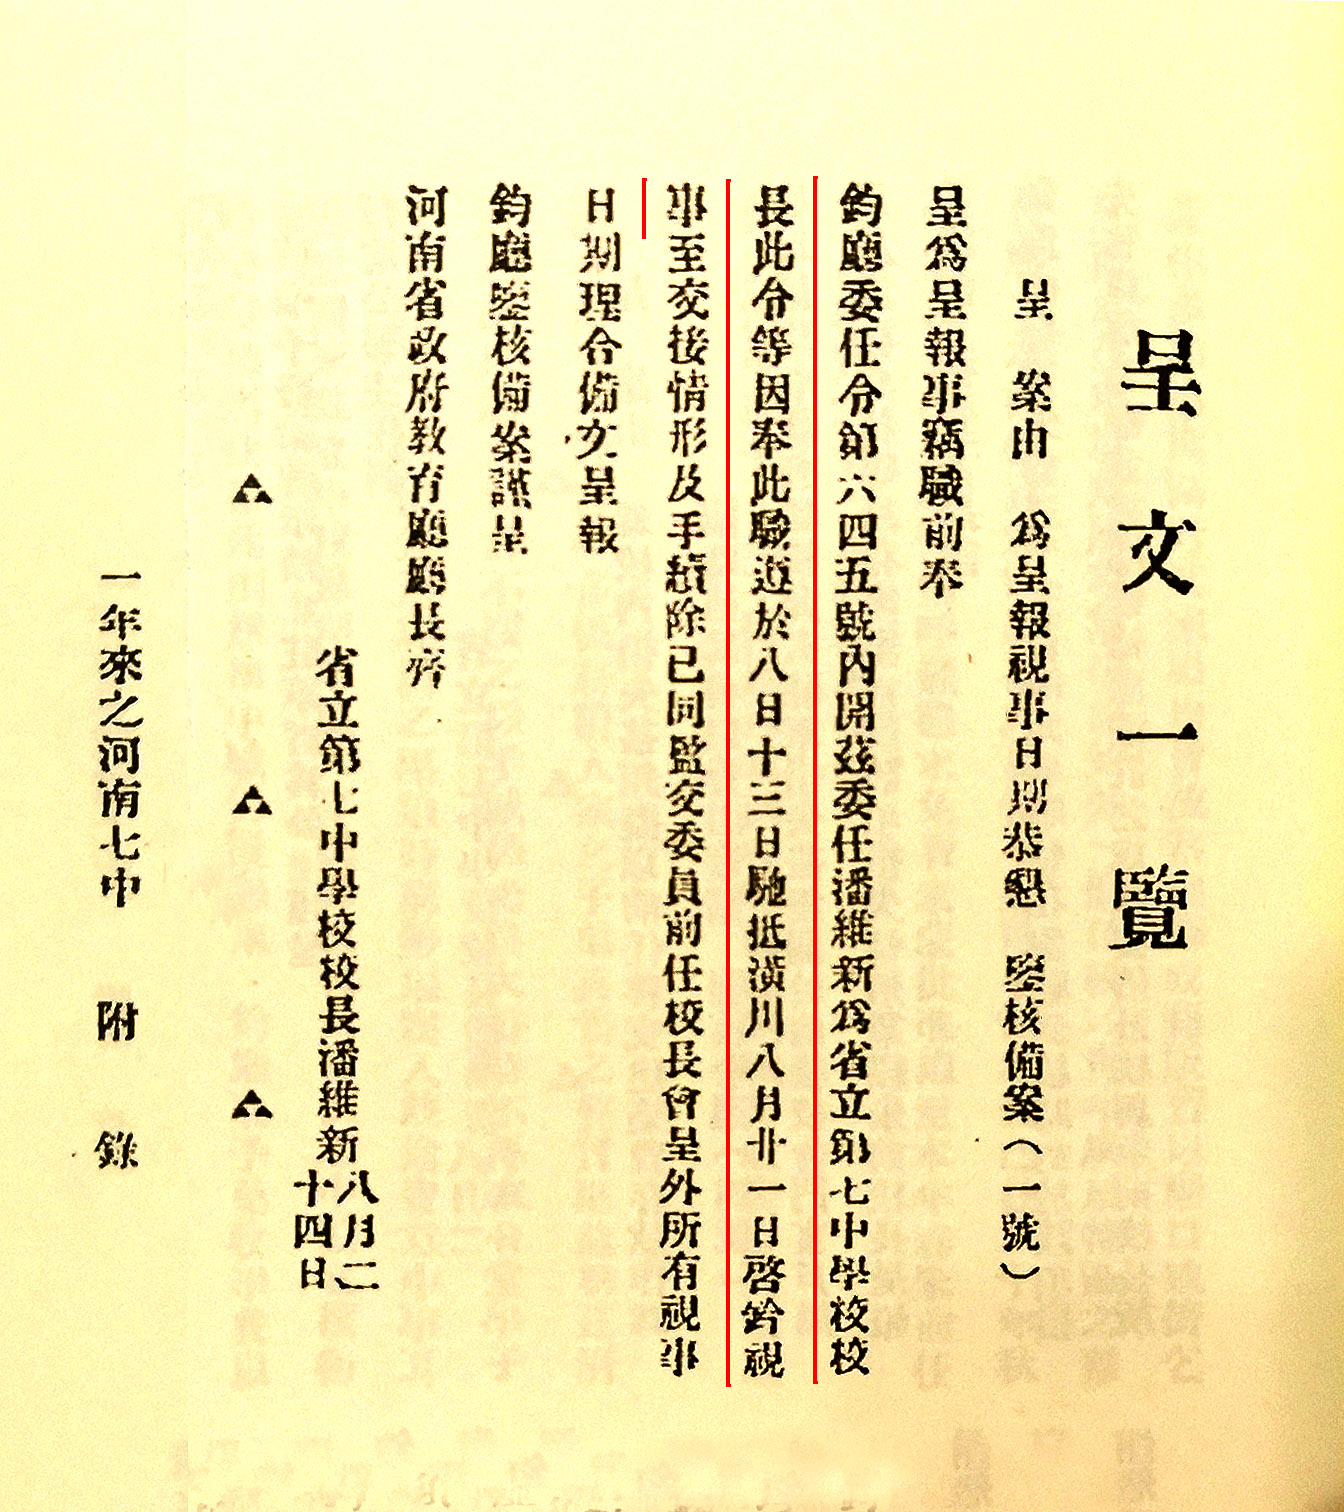 呈文一覽
呈　案由　爲呈報視事日期恭懇　鑒核備案（一號）
呈爲呈報事竊職前奉
鈞廳委任令第六四五號內開茲委任潘維新爲省立第七中學校校
長此令等因奉此職遵於八日十三日馳抵潢川八月廿一日啓鈐視
事至交接情形及手續除已同監交委員前任校長會呈外所有視事
日期理合備文呈報
鈞廳鑒核備案謹呈
河南省政府教育廳廳長齊
省立第七中學校校長潘維新八月二十四日
一年來之河南七中　附　錄